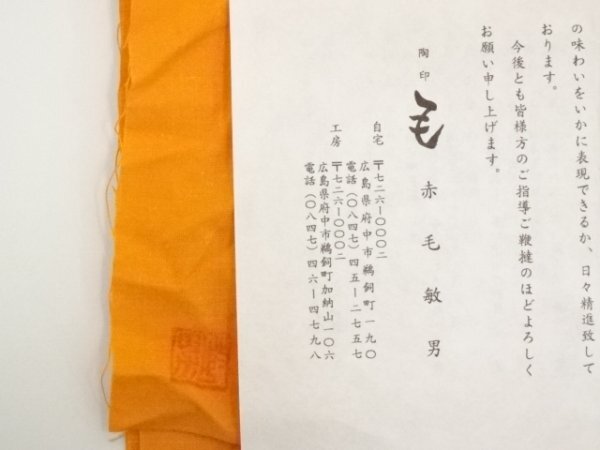 の味わいをいかに表現できるか、日々精進致して
おります。
今後とも皆様方のご指導ご鞭撻のほどよろしく
お願い申し上げます。
陶印
赤毛敏男
自宅 〒七二六ー〇〇〇二
広島県府中市鵜飼町一九〇
電話(〇八四七)四五ー二七五七
工房 〒七二六ー〇〇〇二
広島県府中市鵜飼町加納山一〇六
電話(〇八四七)四六ー四七九八